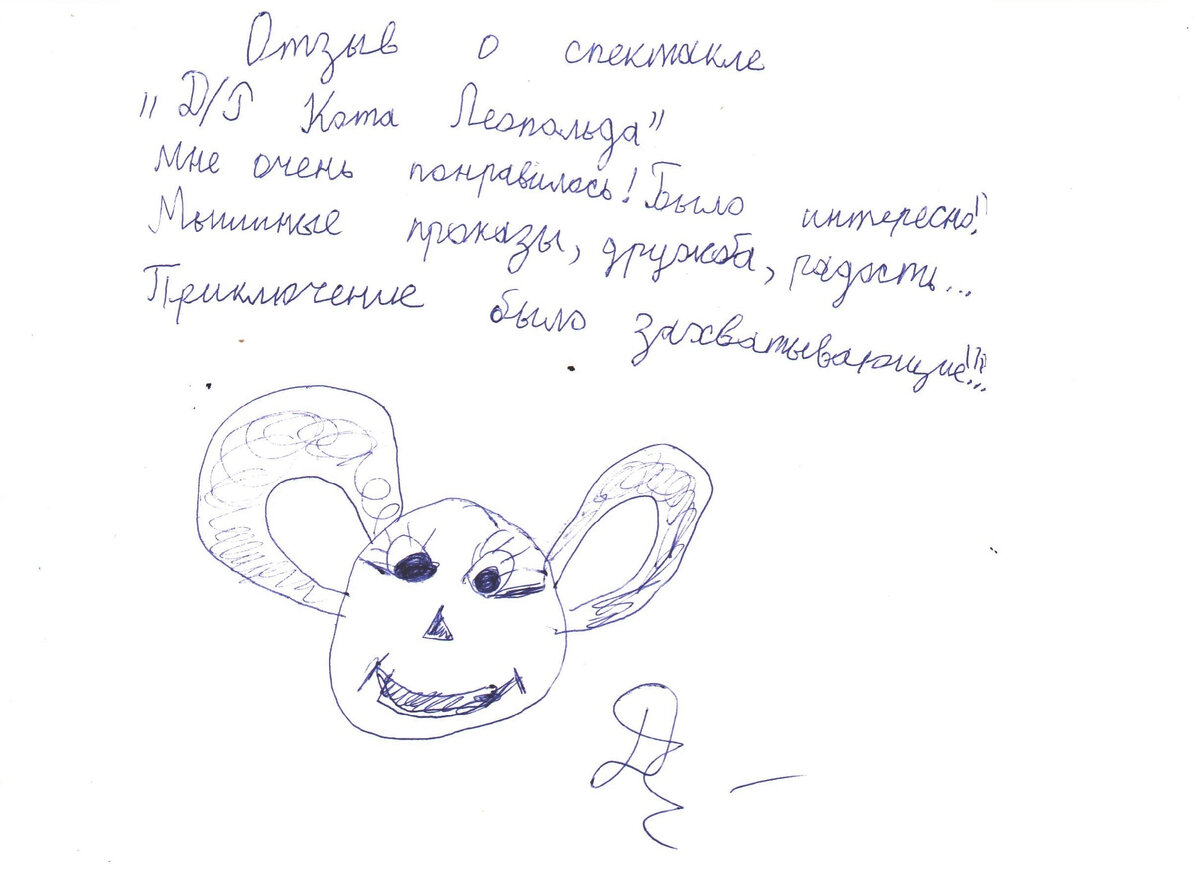 Отзыв о спектакле
"Д/Р Кота Леопольда"
Мне очень понравилось! Было интересно!
Мышиные проказы, дружба, радость...
Приключение было захватывающие!!!